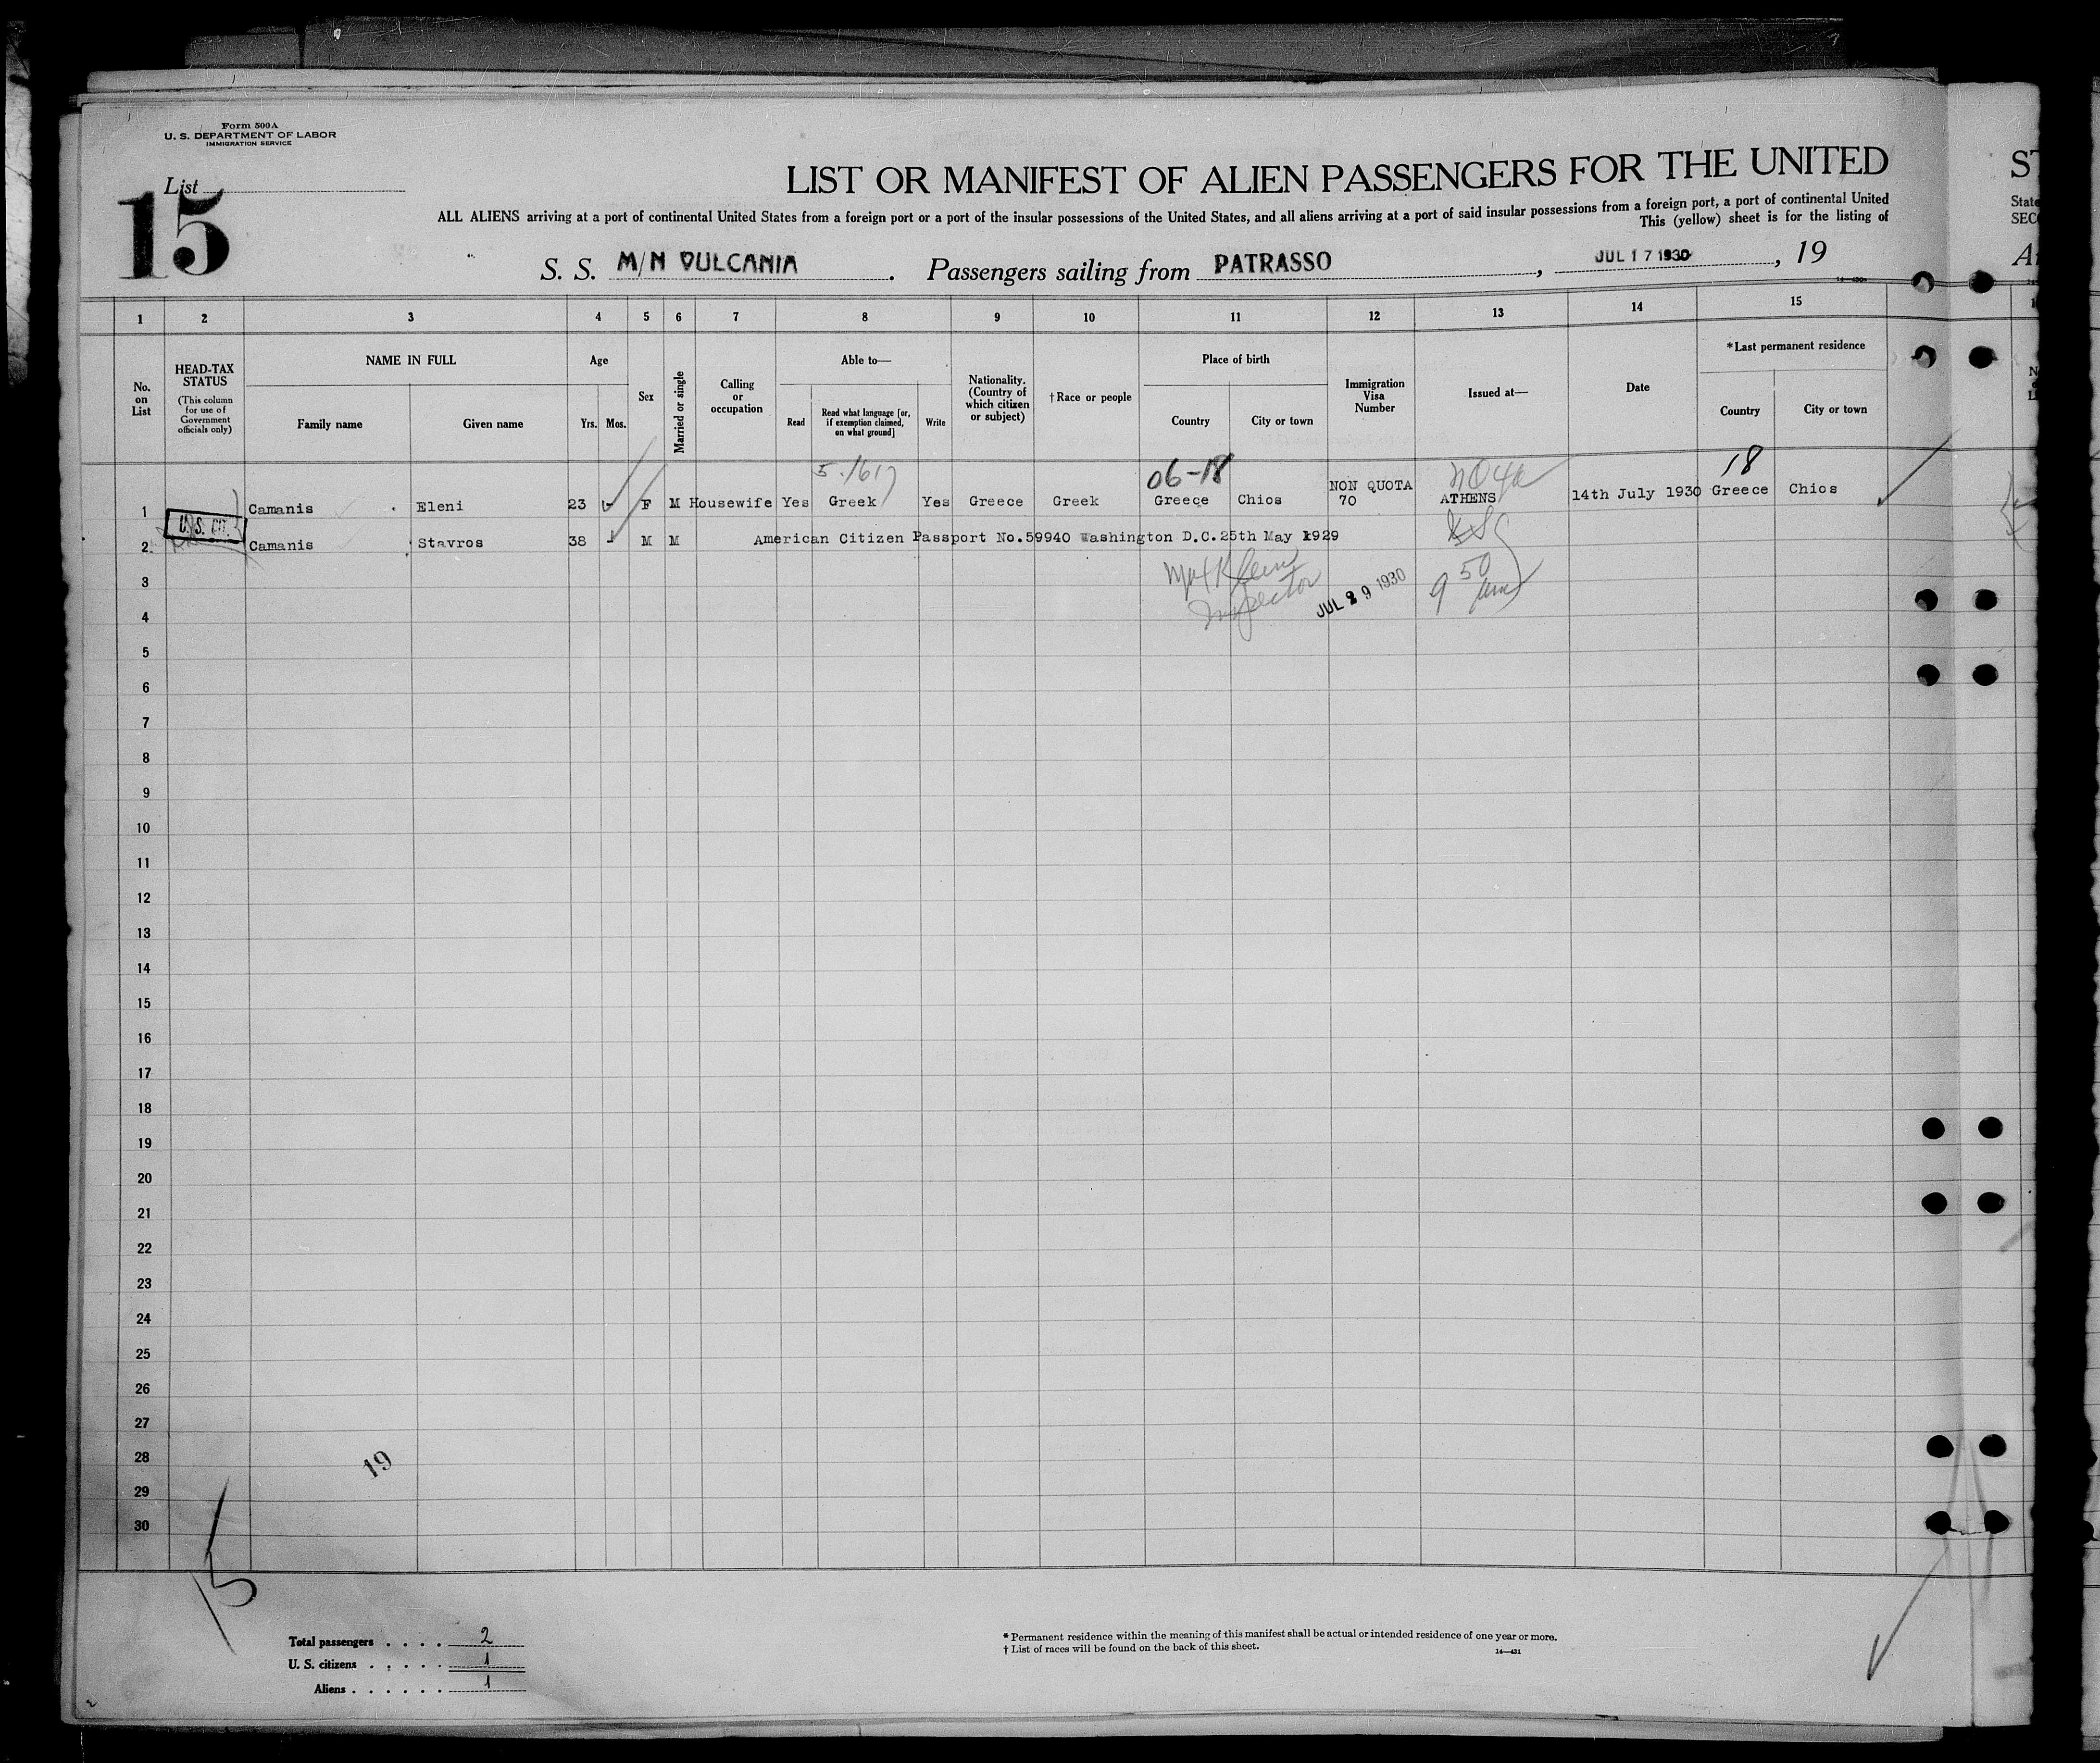 Form 500A
U. S. DEPARTMENT OF LABOR
IMMIGRATION SERVICE
List
15
LIST OR MANIFEST OF ALIEN PASSENGERS FOR THE UNITED
ALL ALIENS arriving at a port of continental United States from a foreign port or a port of the insular possessions of the United States, and all aliens arriving at a port of said insular possessions from a foreign port, a port of continental United
This (yellow) sheet is for the listing of
S. S. M/N VULCANIA. Passengers sailing from PATRASSO, JUL 17 1930, 19
1 2 3 4 5 6 7 8 9 10 11 12 13 14 15
No. on List
HEAD-TAX STATUS
(This column for use of Government officials only)
NAME IN FULL
Family name
Given name
Age
Yrs. Mos.
Sex
Married or single
Calling or occupation
Able to—
Read
Read what language [or, if exemption claimed, on what ground]
Write
Nationality. (Country of which citizen or subject)
†Race or people
Place of birth
Country
City or town
Immigration Visa Number
Issued at—
Date
*Last permanent residence
Country
City or town
06-18
18
1 Camanis Eleni 23 F M Housewife Yes Greek Yes Greece Greek Greece Chios NON QUOTA 70 ATHENS 14th July 1930 Greece Chios
U.S. CIT.
2 Camanis Stavros 38 - M M American Citizen Passport No.59940 Washington D.C.25th May 1929
Inspector
JUL 29 1930
9 50
3
4
5
6
7
8
9
10
11
12
13
14
15
16
17
18
19
20
21
22
23
24
25
26
27
28
29
30
19
15
Total passengers . . . . 2
U. S. citizens . . . . . 1
Aliens . . . . . . 1
* Permanent residence within the meaning of this manifest shall be actual or intended residence of one year or more.
† List of races will be found on the back of this sheet.
14—431